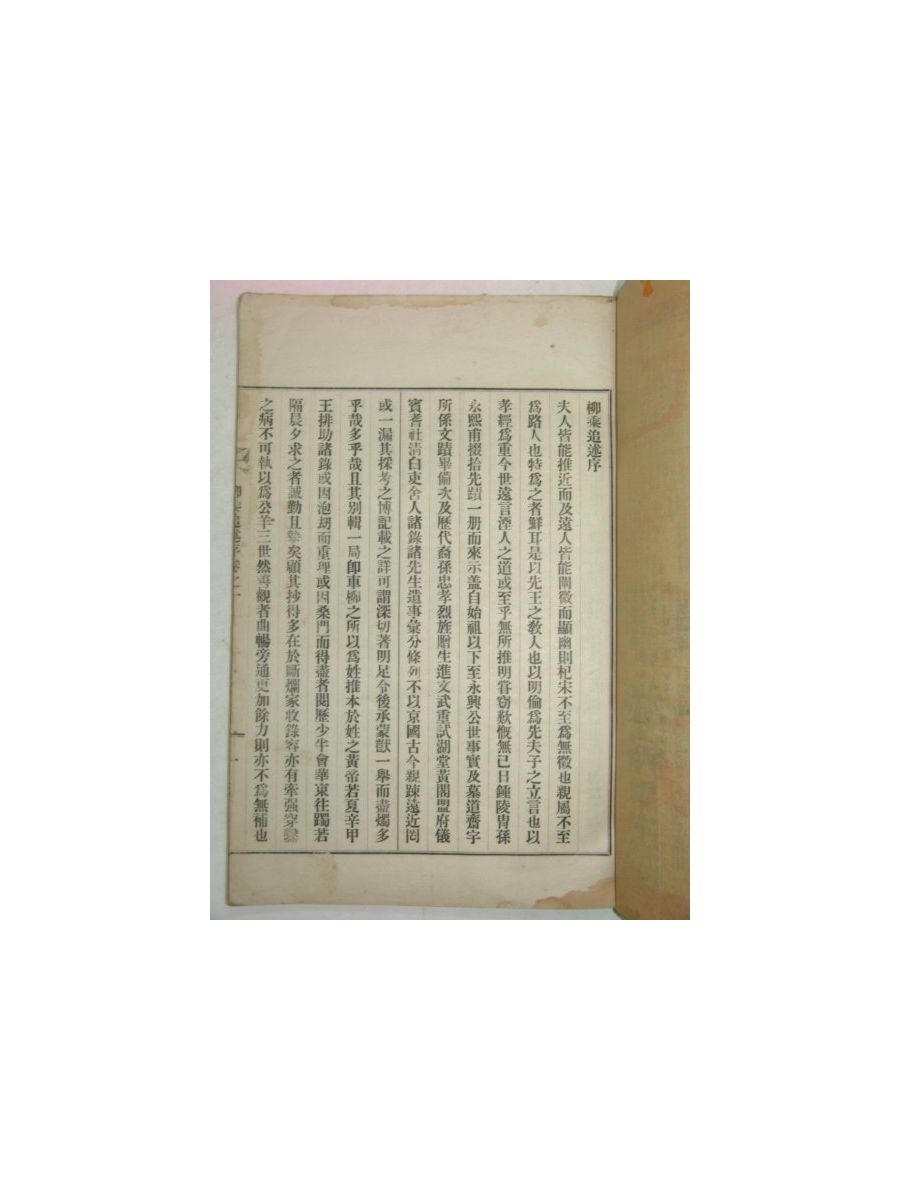 柳乘追述序
夫人皆能推近而及遠人皆能闡微而顯幽則杞宋不至爲無徵也親屬不至
爲路人也特爲之者鮮耳是以先王之敎人也以明倫爲先夫子之立言也以
孝經爲重今世遠言湮人之道或至乎無所推明甞窃歎慨無已日鍾陵胄孫
永熙甫掇拾先蹟一册而來示盖自始祖以下至永興公世事實及墓道齋宇
所係文蹟畢備次及歷代裔孫忠孝烈旌贈生進文武重試湖堂黃閣盟府儀
賓耆社淸白吏舍人諸錄諸先生遺事彙分條列不以京國古今親踈遠近罔
或一漏其採考之博記載之詳可謂深切著明足令後承蒙猷一擧而盡燭多
乎哉多乎哉且其別輯一局卽車柳之所以爲姓推本於姓之黃帝若夏辛甲
王排助諸錄或因泡刼而重理或因桑門而得盡者閱歷少半會華東往躅若
隔晨夕求之者誠勤且摯矣顧其抄得多在於斷爛家收錄容亦有牽强穿鑿
之病不可執以爲公羊三世然善觀者曲暢旁通更加餘力則亦不爲無補也